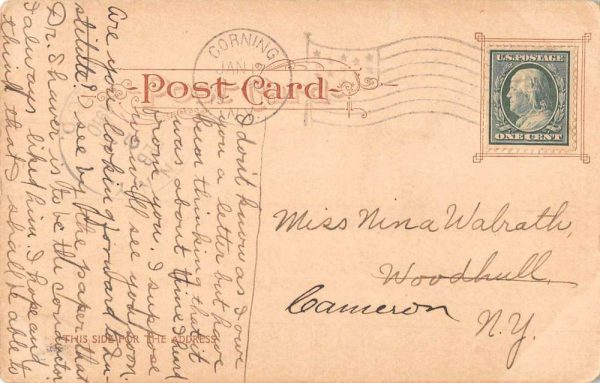 CORNING
JAN
Post Card
U.S. POSTAGE
ONE CENT
Miss Nina Walrath,
Woodhull,
Cameron
N.Y.
THIS SIDE FOR THE ADDRESS
I don't know as I owe
you a letter but have
been thinking that it
was about time I hurd
from you. I suppose
you will see you soon.
Are you looking forward to In-
stitute? I see by the paper that
Dr. Shaver is to be the conductor.
I always liked him. I hope and
think that I shall be able to